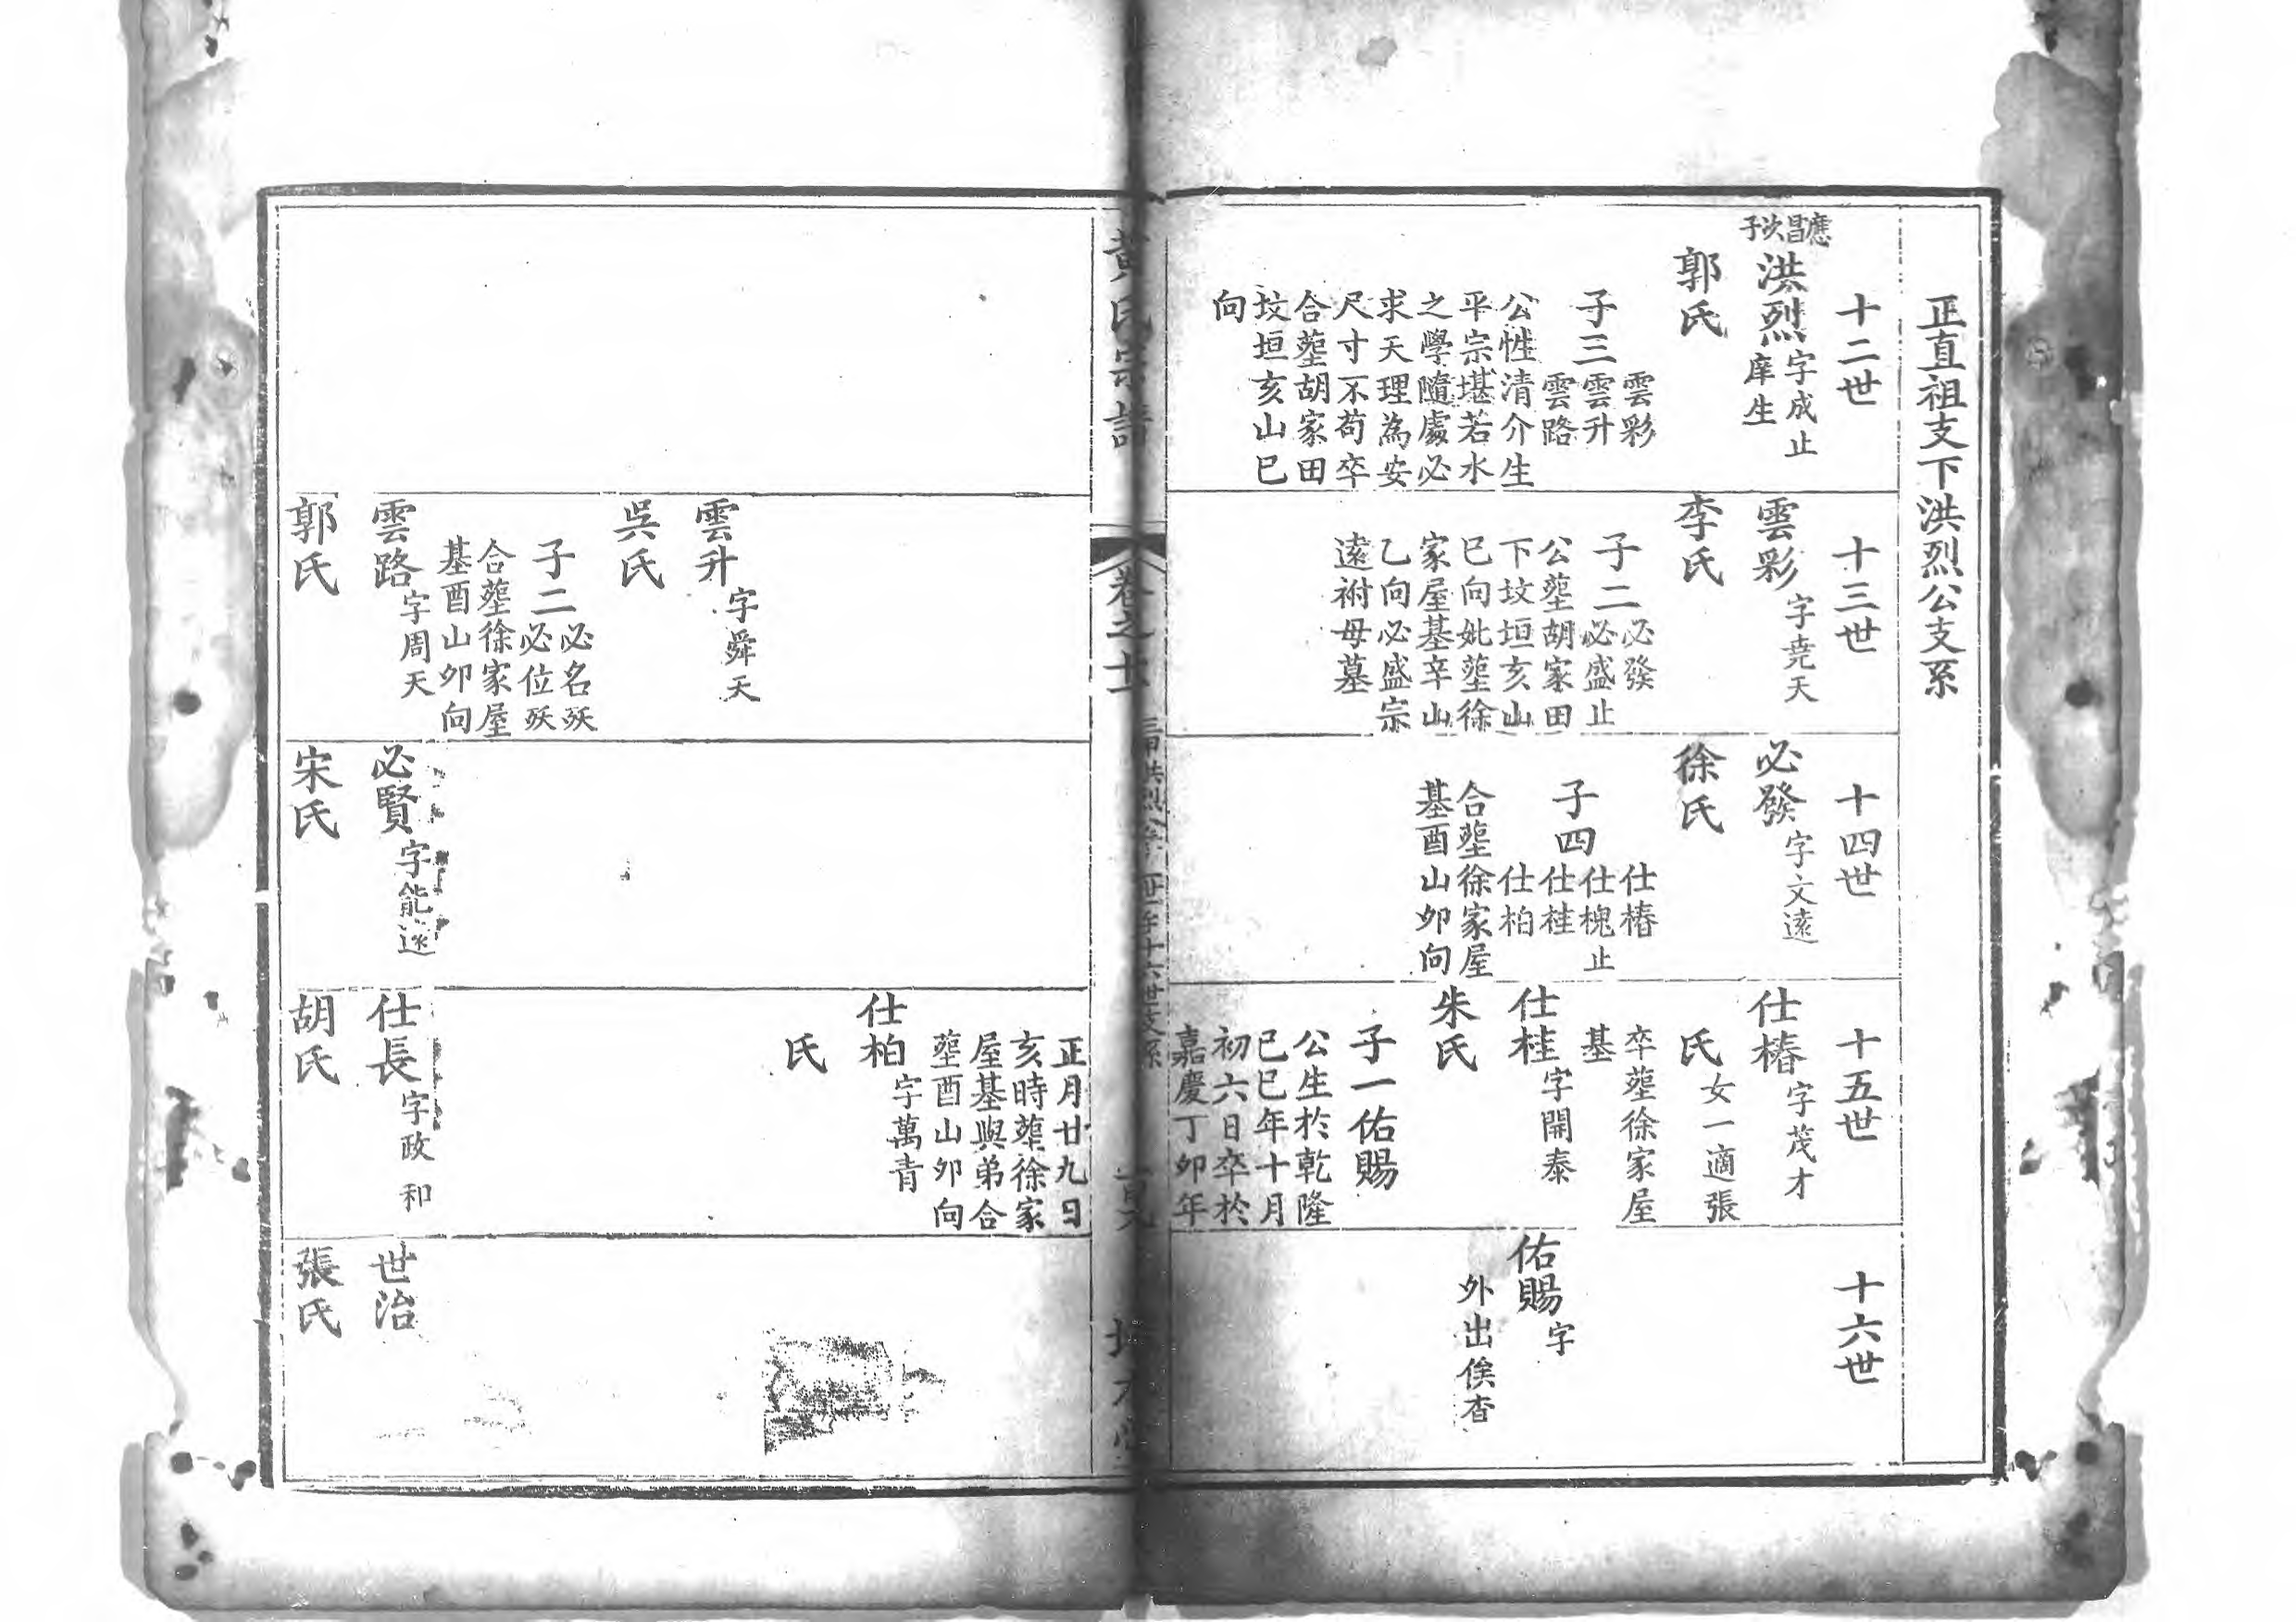 正直祖支下洪烈公支系
十二世
應昌次子
洪烈字成止
庠生
郭氏
子三雲彩
雲升
雲路
公性清介生
平宗堪若水
之學隨處必
求天理為安
尺寸不苟卒
合塟胡家田
坟垣亥山巳
向
十三世
雲彩字堯天
李氏
子二必發
必盛止
公塟胡家田
下坟垣亥山
巳向妣塟徐
家屋基辛山
乙向必盛宗
遠祔母墓
十四世
必發字文遠
徐氏
子四仕椿
仕槐止
仕桂
仕柏
合塟徐家屋
基酉山卯向
十五世
仕椿字茂才
氏女一適張
卒塟徐家屋
基
仕桂字開泰
朱氏
子一佑賜
公生於乾隆
己巳年十月
初六日卒於
嘉慶丁卯年
十六世
佑賜字
外出俟查
黃氏宗譜
卷之十一
雲升字舜天
吳氏
子二必名殀
必位殀
合塟徐家屋
基酉山卯向
雲路字周天
郭氏
必賢字能遠
宋氏
正月廿九日
亥時塟徐家
屋基與弟合
塟酉山卯向
仕柏字萬青
氏
仕長字政和
胡氏
世治
張氏